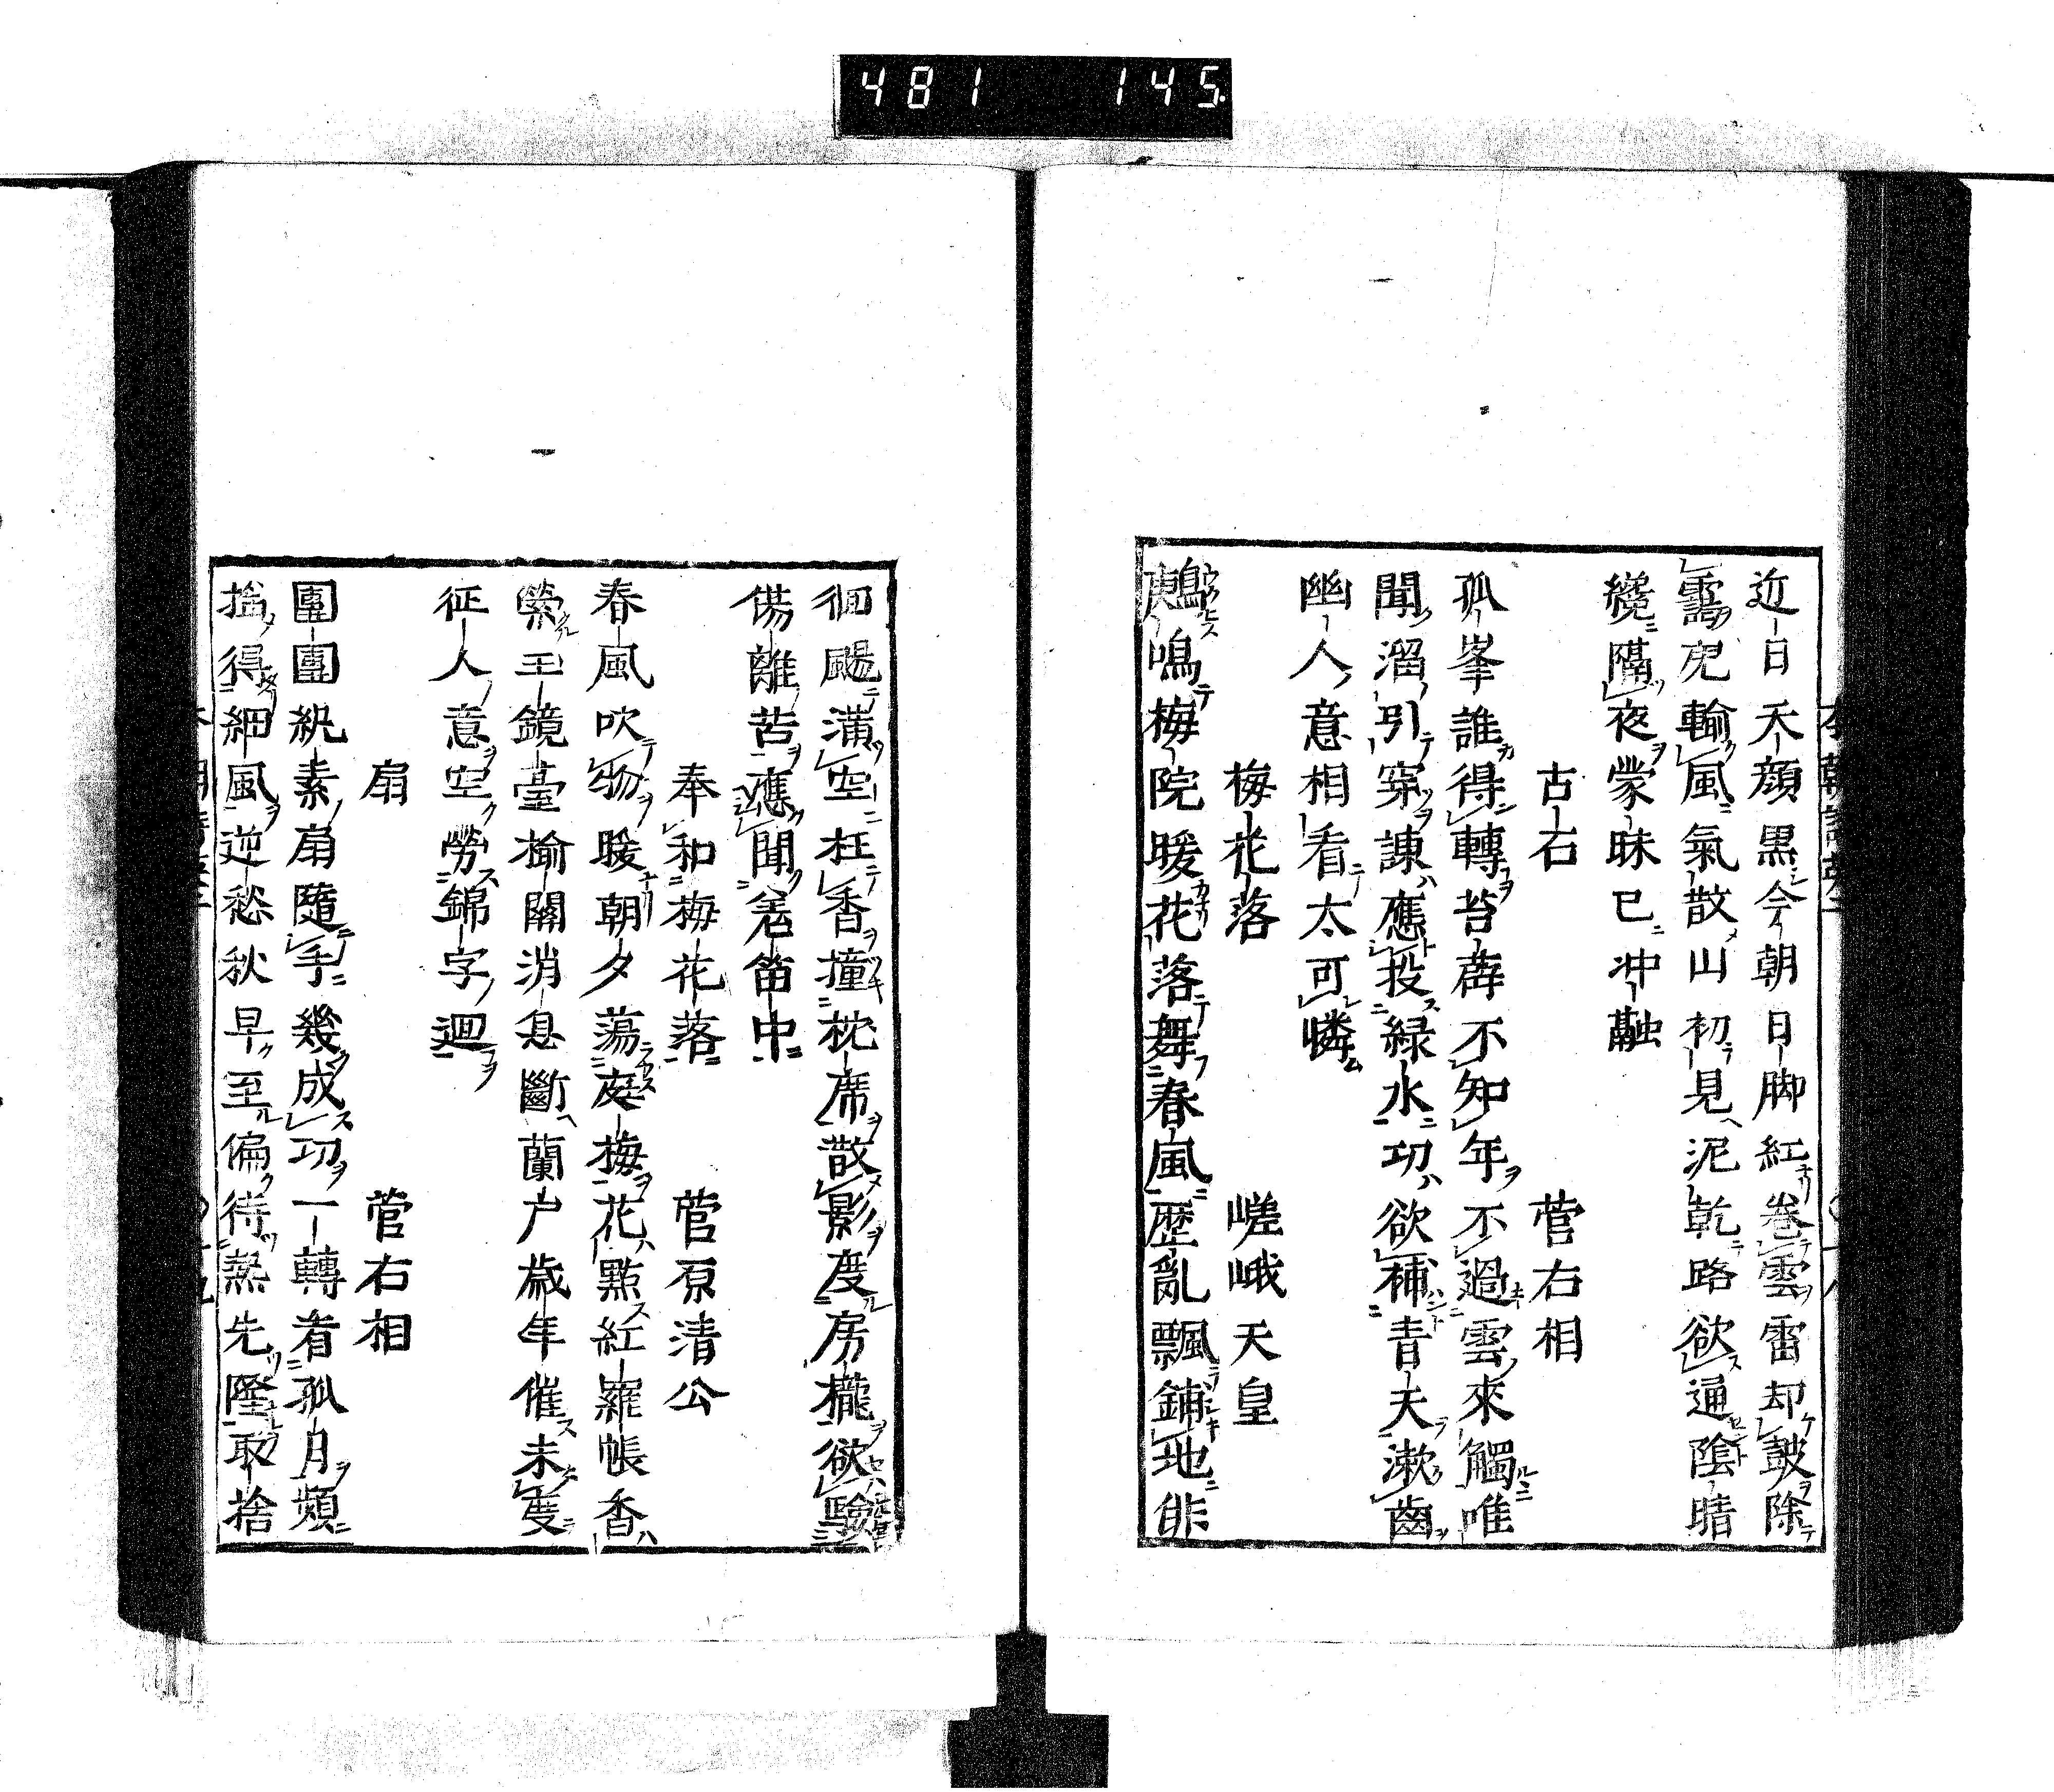 481 145
近日天顔黒今朝日脚紅卷雲雷却鼓除
靄皃輸風氣散山初見泥乾路欲通陰晴
纔隔夜蒙昧已冲融
古石 菅右相
孤峯誰得轉苔薜不知年不過雲來觸唯
聞溜引穿諫應投緑水功欲補青天漱齒
幽人意相看太可憐
梅花落 嵯峨天皇
鳴梅院暖花落舞春風歴亂飄鋪地徘
徊颺滿空狂香撞枕席散影度房櫳欲驗
傷離苦應聞羌笛中
奉和梅花落 菅原清公
春風吹物暖朝夕蕩庭梅花點紅羅帳香
縈玉鏡臺榆關消息斷蘭户歳年催未隻
征人意空勞錦字迴
扇 菅右相
團團紈素扇隨手幾成功一轉看孤月頻
搖得細風逆愁秋早至偏待熱先隆取捨